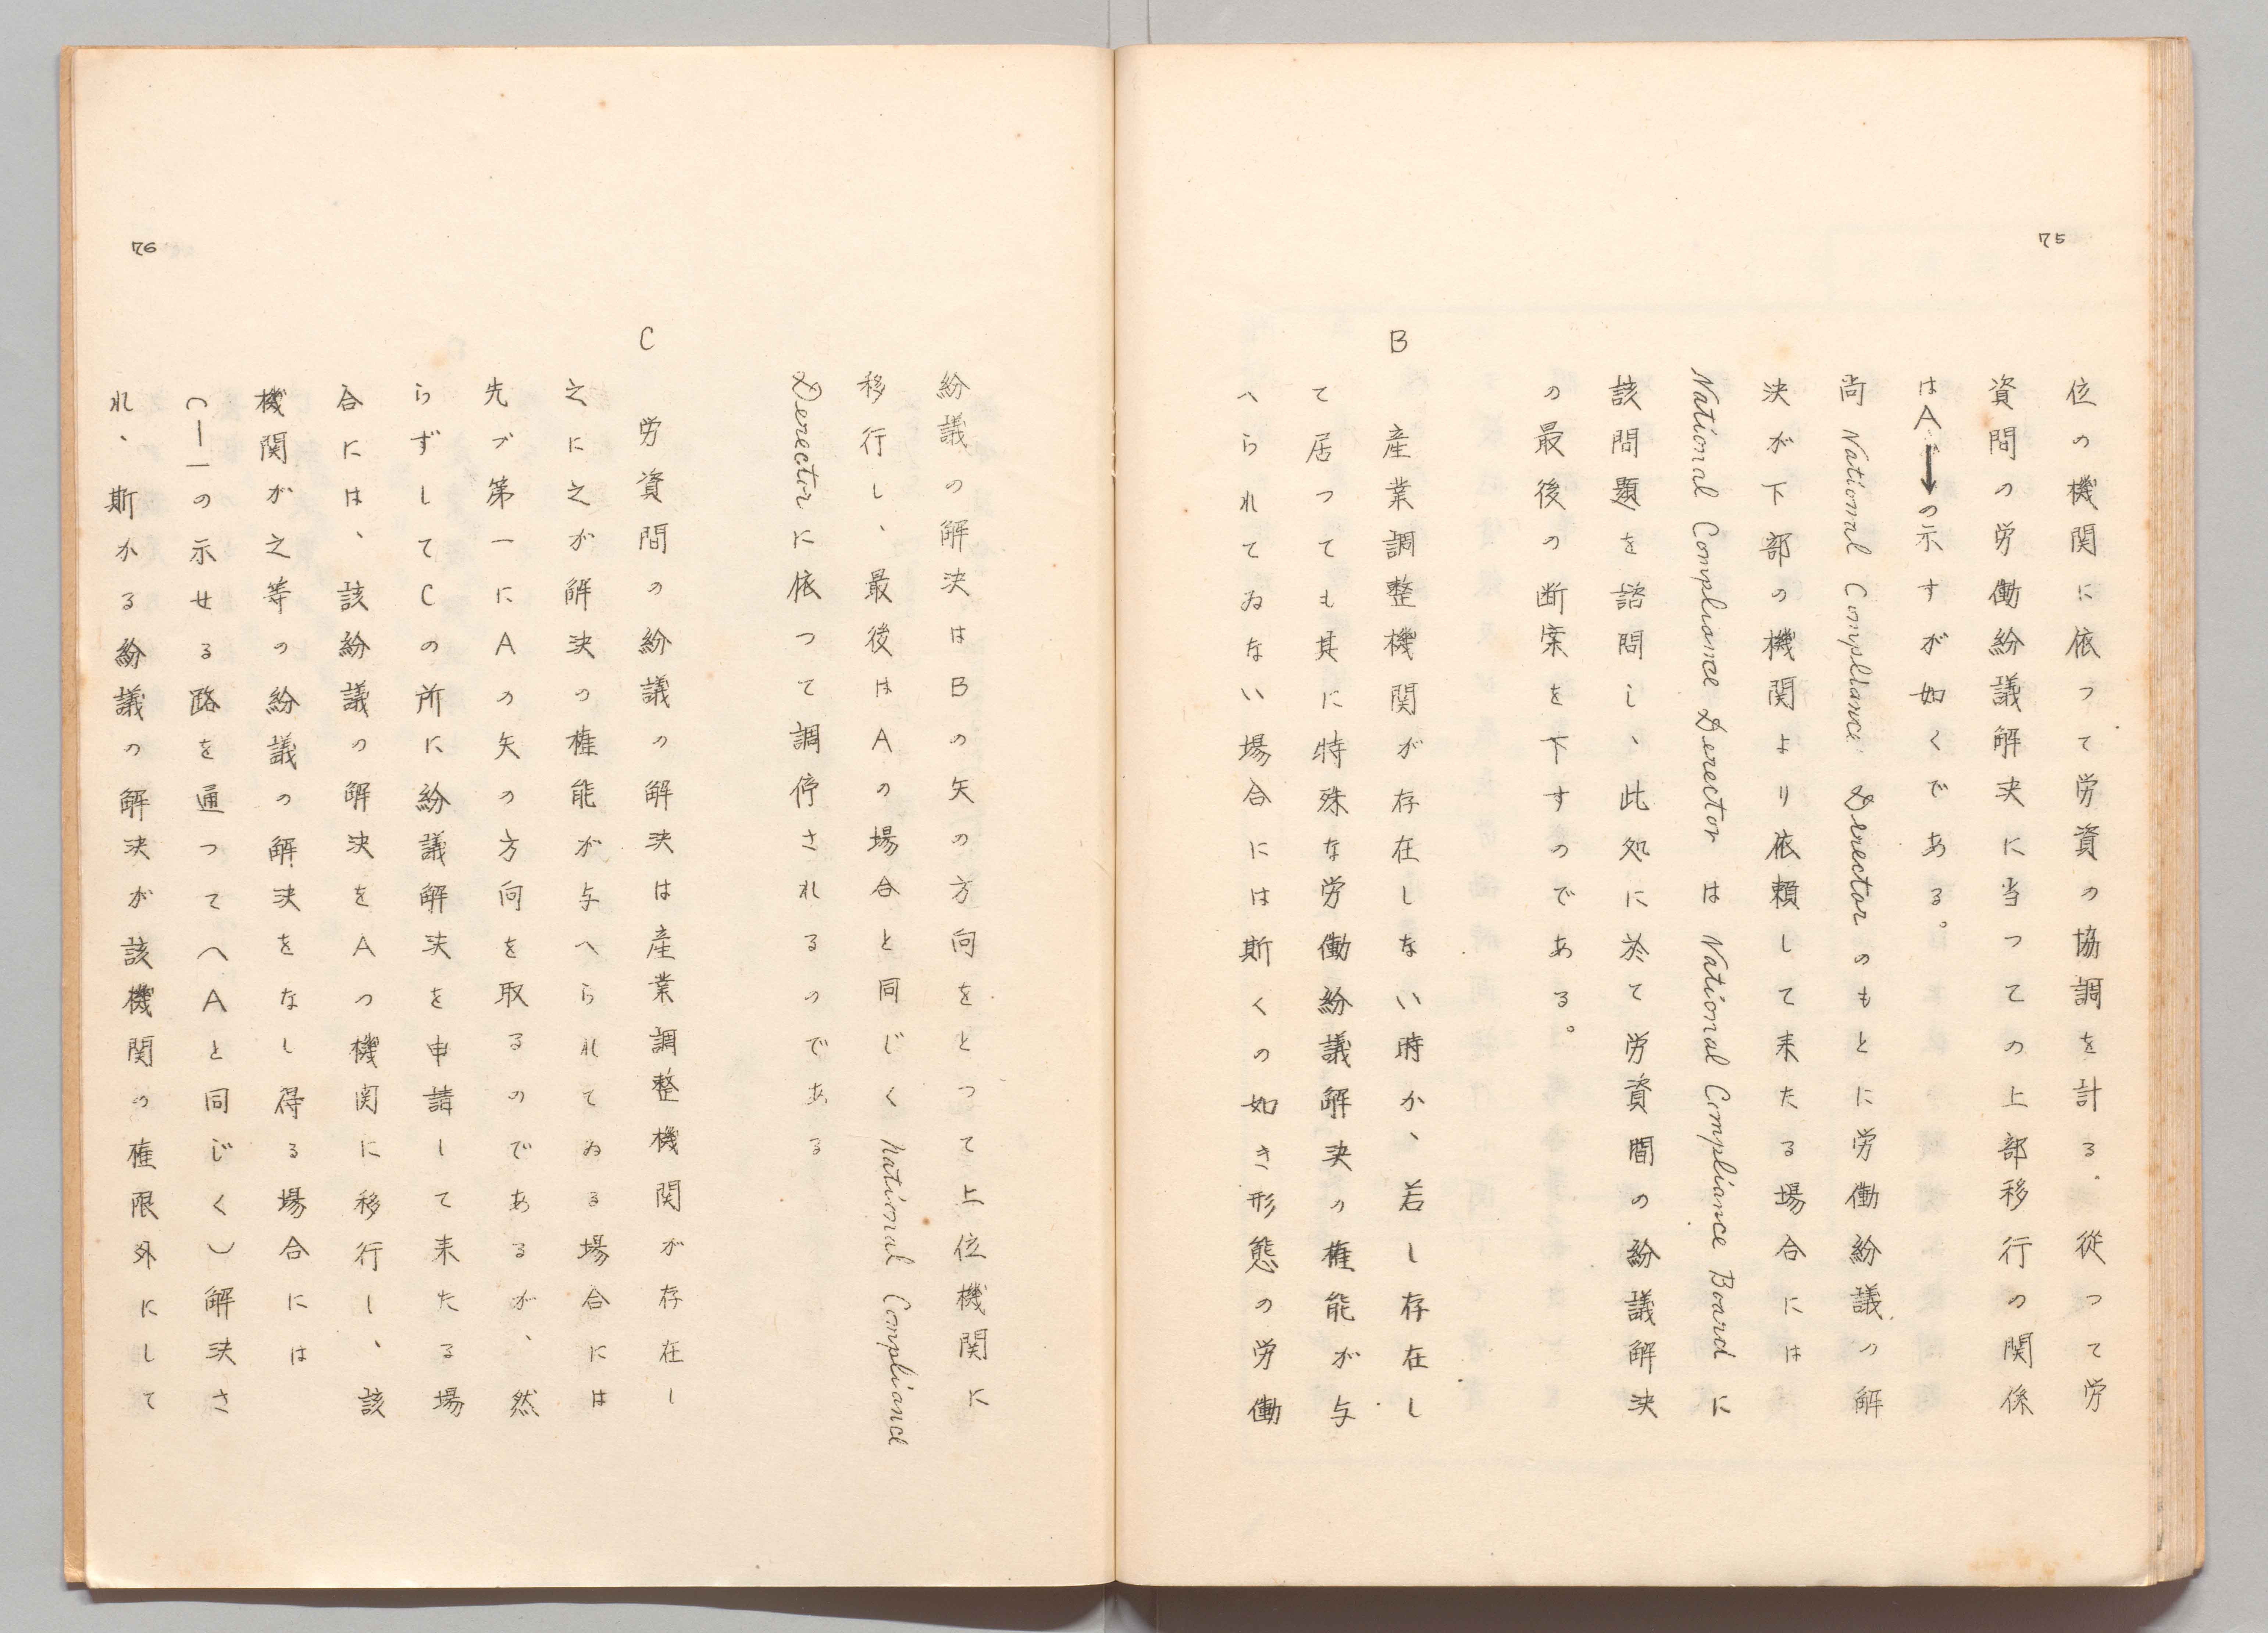 75
位の機関に依つて労資の協調を計る。従つて労
資間の労働紛議解決に当つての上部移行の関係
はA↓の示すが如くである。
尚National Compliance Derectorのもとに労働紛議の解
決が下部の機関より依頼して来たる場合には
National Compliance Derector は National Compliance Board に
該問題を諮問し、此処に於て労資間の紛議解決
の最後の断案を下すのである。
B 産業調整機関が存在しない時か、若し存在し
て居つても其に特殊な労働紛議解決の権能が与
へられてゐない場合には斯くの如き形態の労働
76
紛議の解決はBの矢の方向をとつて上位機関に
移行し、最後はAの場合と同じくNational Compliance
Derectorに依つて調停されるのである
C 労資間の紛議の解決は産業調整機関が存在し
之に之が解決の権能が与へられてゐる場合には
先ヅ第一にAの矢の方向を取るのであるが、然
らずしてCの所に紛議解決を申請して来たる場
合には、該紛議の解決をAの機関に移行し、該
機関が之等の紛議の解決をなし得る場合には
(―一の示せる路を通つてヘAと同じく)解決さ
れ、斯かる紛議の解決が該機関の権限外にして